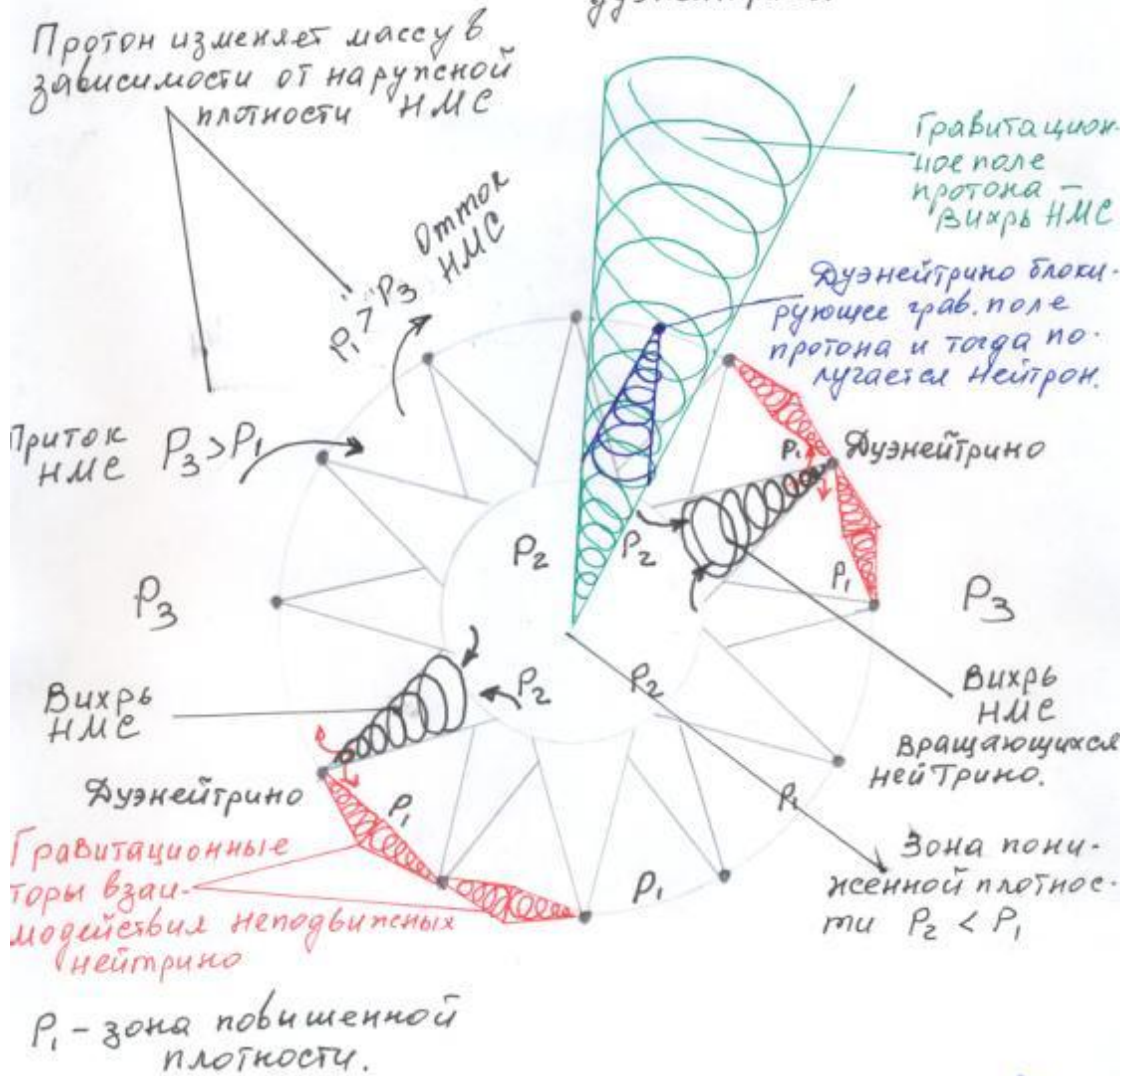 Протон изменяет массу в
зависимости от наружной
плотности НМС
Отток
НМС
P₁ > P₃
Гравитацион-
ное поле
протона –
Вихрь НМС
Дуэнейтрино блоки-
рующее грав. поле
протона и тогда по-
лучается нейтрон.
Приток
НМС
P₃ > P₁
P₁
Дуэнейтрино
P₂
P₂
P₁
P₃
P₃
P₂
P₂
Вихрь
НМС
Вихрь
НМС
вращающихся
нейтрино.
Дуэнейтрино
P₁
P₁
P₁
Гравитационные
торы взаи-
модействия неподвижных
нейтрино
Зона пони-
женной плотнос-
ти P₂ < P₁
P₁ – зона повышенной
плотности.